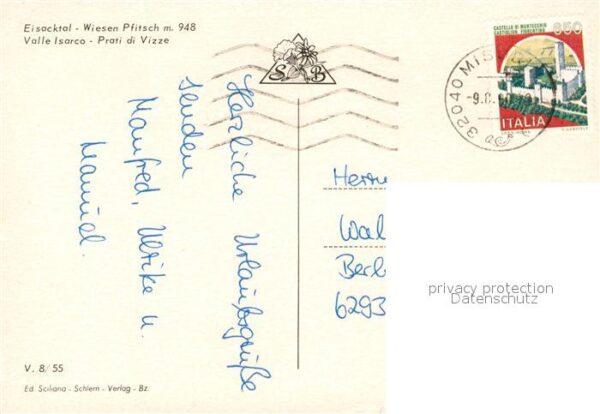 Eisacktal - Wiesen Pfitsch m. 948
Valle Isarco - Prati di Vizze
S B
CASTELLO DI MONTECCHIO
CASTIGLION FIORENTINO
850
ITALIA
32040 MIS
-9.8.
Herzliche Urlaubsgrüße
senden
Manfred, Ulrike u.
Manuel.
Herrn
Wal
Berl
6293
privacy protection
Datenschutz
V. 8/55
Ed. Sciliana - Schlern - Verlag - Bz.